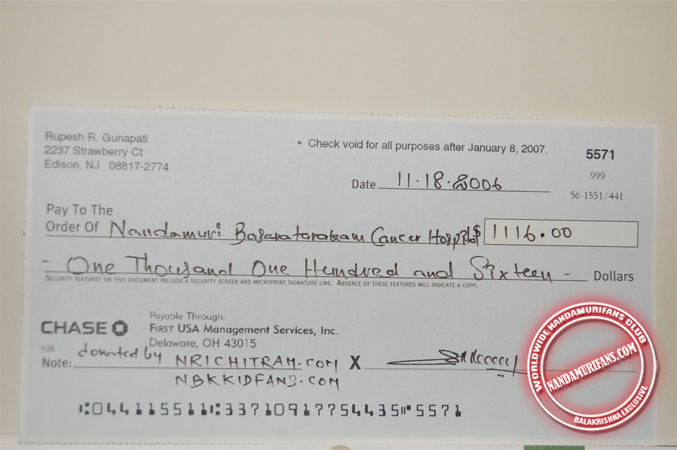 Rupesh R. Gunapati
2237 Strawberry Ct
Edison, NJ 08817-2774
• Check void for all purposes after January 8, 2007.
5571
999
Date 11·18·2006
56-1551/441
Pay To The
Order Of Nandamuri Basavatarakam Cancer Hospital $ 1116.00
- One Thousand One Hundred and Sixteen - Dollars
SECURITY FEATURES ON THIS DOCUMENT INCLUDE A SECURITY SCREEN AND MICROPRINT SIGNATURE LINE. ABSENCE OF THESE FEATURES WILL INDICATE A COPY.
Payable Through:
CHASE FIRST USA Management Services, Inc.
Delaware, OH 43015
106
Note: donated by NRICHITRAM.COM X
NBKKIDFANS.COM
⑆044115511⑆3371091775443⑈5571
WORLDWIDE NANDAMURIFANS CLUB
NANDAMURIFANS.COM
BALAKRISHNA EXCLUSIVE